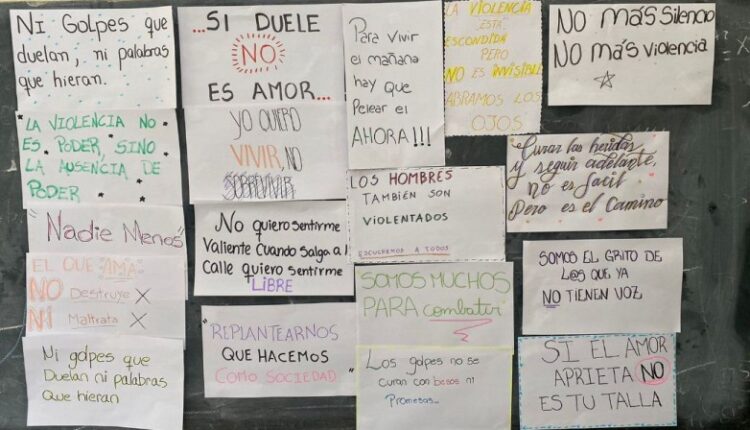 Ni Golpes que
duelan, ni palabras
que hieran.
LA VIOLENCIA NO
ES PODER, SINO
LA AUSENCIA DE
PODER
"Nadie Menos"
EL QUE AMA
NO Destruye X
NI Maltrata X
Ni golpes que
Duelan ni palabras
Que hieran
...SI DUELE
NO
ES AMOR...
YO QUIERO
VIVIR, NO
SOBREVIVIR
No quiero sentirme
Valiente Cuando salga a l
Calle quiero sentirme
LIBRE
"REPLANTEARNOS
QUE HACEMOS
COMO SOCIEDAD"
Para vivir
el mañana
hay que
Pelear el
AHORA!!!
LOS HOMBRES
TAMBIÉN SON
VIOLENTADOS
ESCUCHEMOS A TODOS
SOMOS MUCHOS
PARA combatir
Los golpes no se
curan con besos ni
Promesas...
LA VIOLENCIA
ESTA
ESCONDIDA
PERO
NO ES INVISIBLE
ABRAMOS LOS
OJOS
NO MÁS Silencio
NO MÁS Violencia
Curar las heridas,
y seguir adelante,
no es facil
Pero es el Camino
SOMOS EL GRITO DE
L@S QUE YA
NO TIENEN VOZ
SI EL AMOR
APRIETA NO
ES TU TALLA